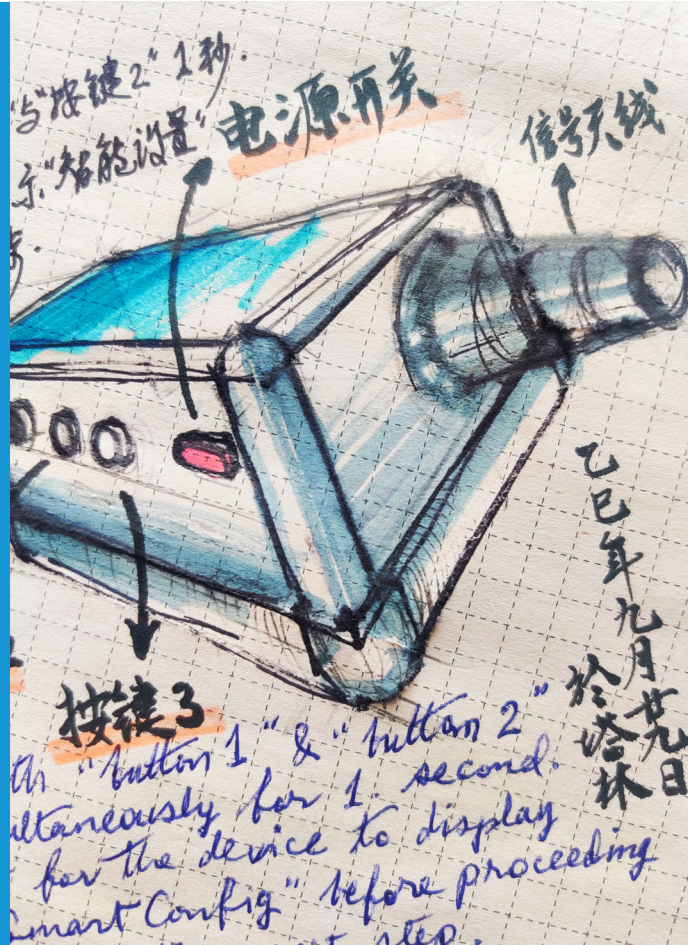 与"按键2"1秒.
示"智能设置"
电源开关
信号天线
乙巳年九月廿九日
於塔林
按键3
"button 1" & "button 2"
for 1. second.
for the device to display
Smart Config" before proceeding
step.